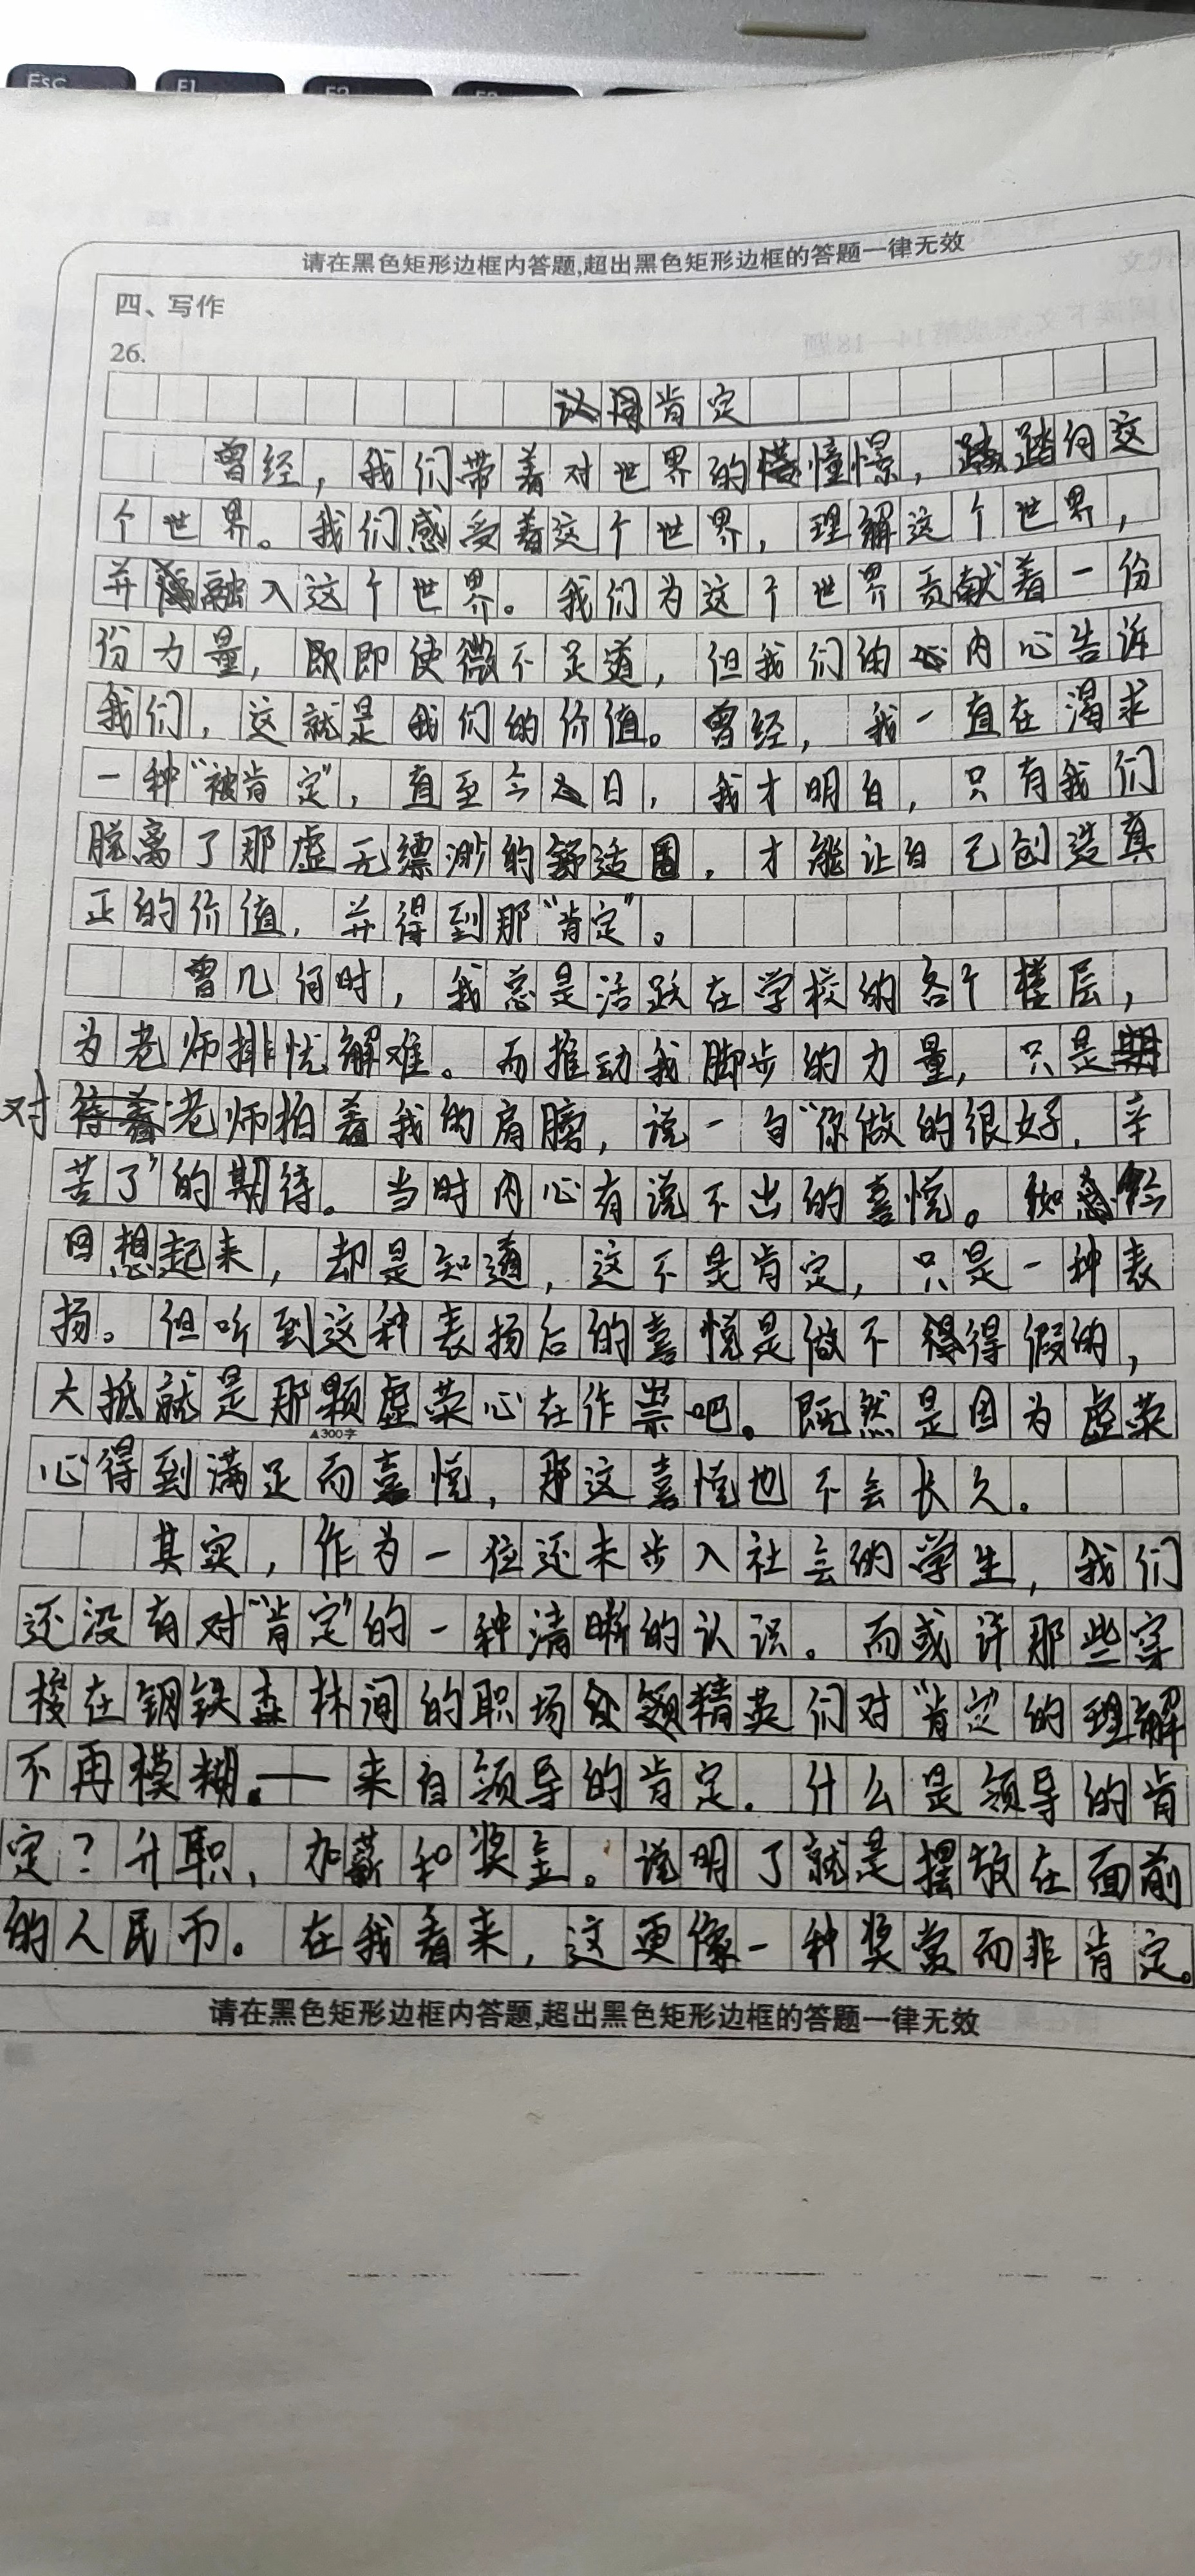 Esc F1 F2 F3
请在黑色矩形边框内答题,超出黑色矩形边框的答题一律无效
四、写作
26.
肯定
曾经，我们带着对世界的憧憬，踏向这
个世界。我们感受着这个世界，理解这个世界，
并融入这个世界。我们为这个世界贡献着一份
份力量，即使微不足道，但我们的内心告诉
我们，这就是我们的价值。曾经，我一直在渴求
一种“被肯定”，直至今日，我才明白，只有我们
脱离了那虚无缥渺的舒适圈，才能让自己创造真
正的价值，并得到那“肯定”。
曾几何时，我总是活跃在学校的各个楼层，
为老师排忧解难。而推动我脚步的力量，只是
对老师拍着我的肩膀，说一句“你做的很好，辛
苦了”的期待。当时内心有说不出的喜悦。
回想起来，却是知道，这不是肯定，只是一种表
扬。但听到这种表扬后的喜悦是做不得假的，
大抵就是那颗虚荣心在作祟吧。既然是因为虚荣
▲300字
心得到满足而喜悦，那这喜悦也不会长久。
其实，作为一位还未步入社会的学生，我们
还没有对“肯定”的一种清晰的认识。而或许那些穿
梭在钢铁森林间的职场精英们对“肯定”的理解
不再模糊。——来自领导的肯定。什么是领导的肯
定？升职、加薪和奖金。说明了就是摆放在面前
的人民币。在我看来，这更像一种奖赏而非肯定。
请在黑色矩形边框内答题,超出黑色矩形边框的答题一律无效